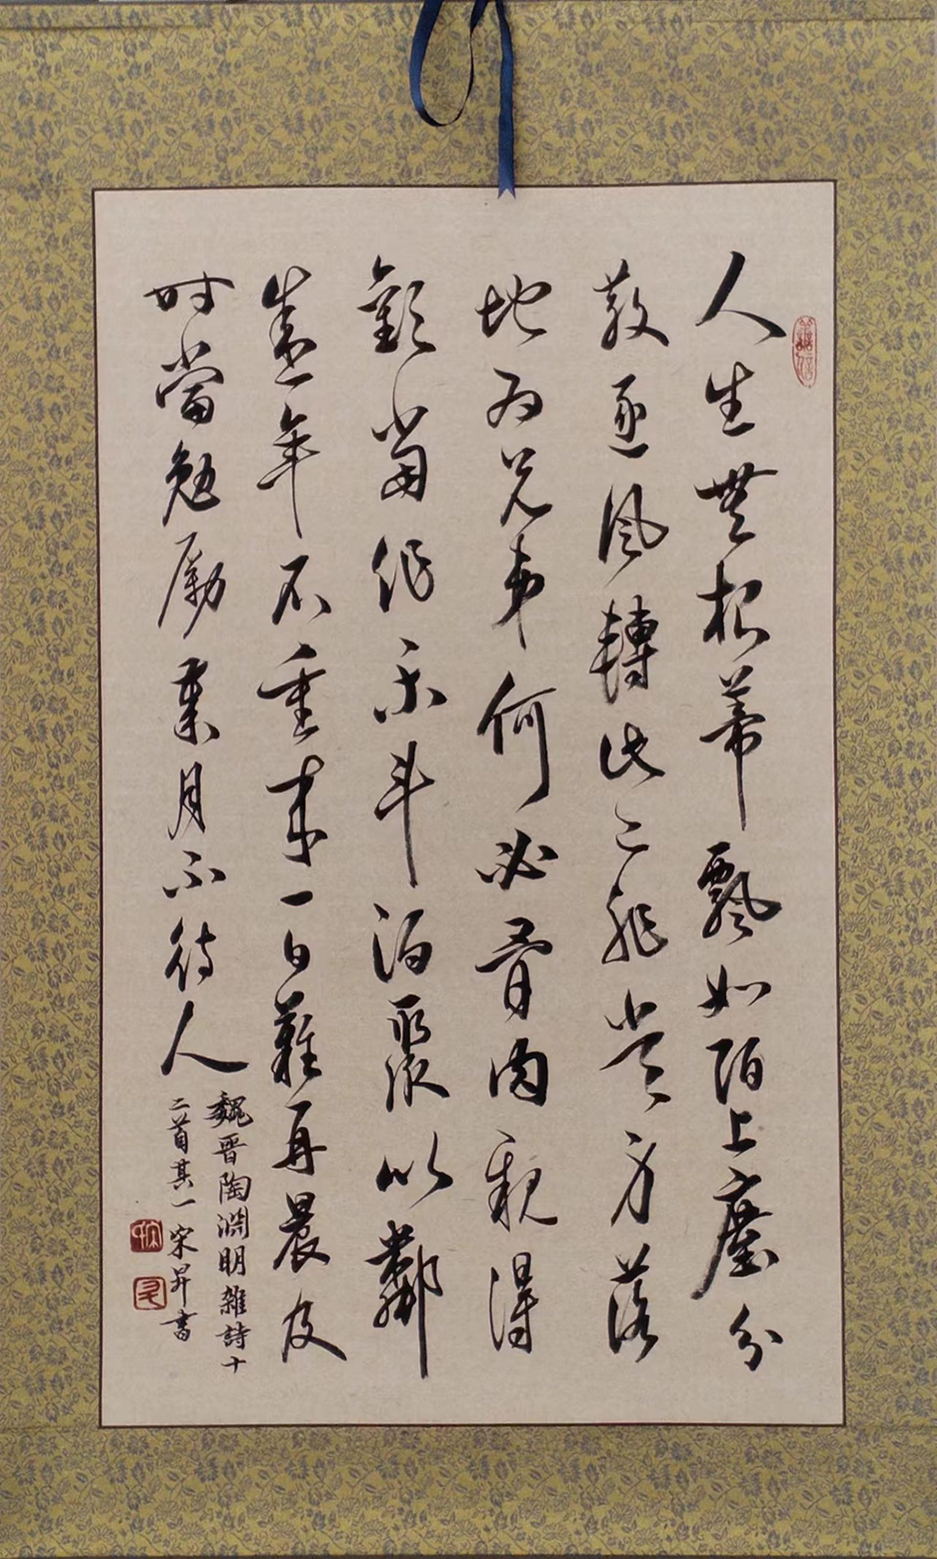 人生無根蒂飄如陌上塵分
散逐風轉此已非常身落
地為兄弟何必骨肉親得
歡當作樂斗酒聚比鄰
盛年不重來一日難再晨及
時當勉勵歲月不待人
魏晉陶淵明雜詩十
二首其一宋昇書